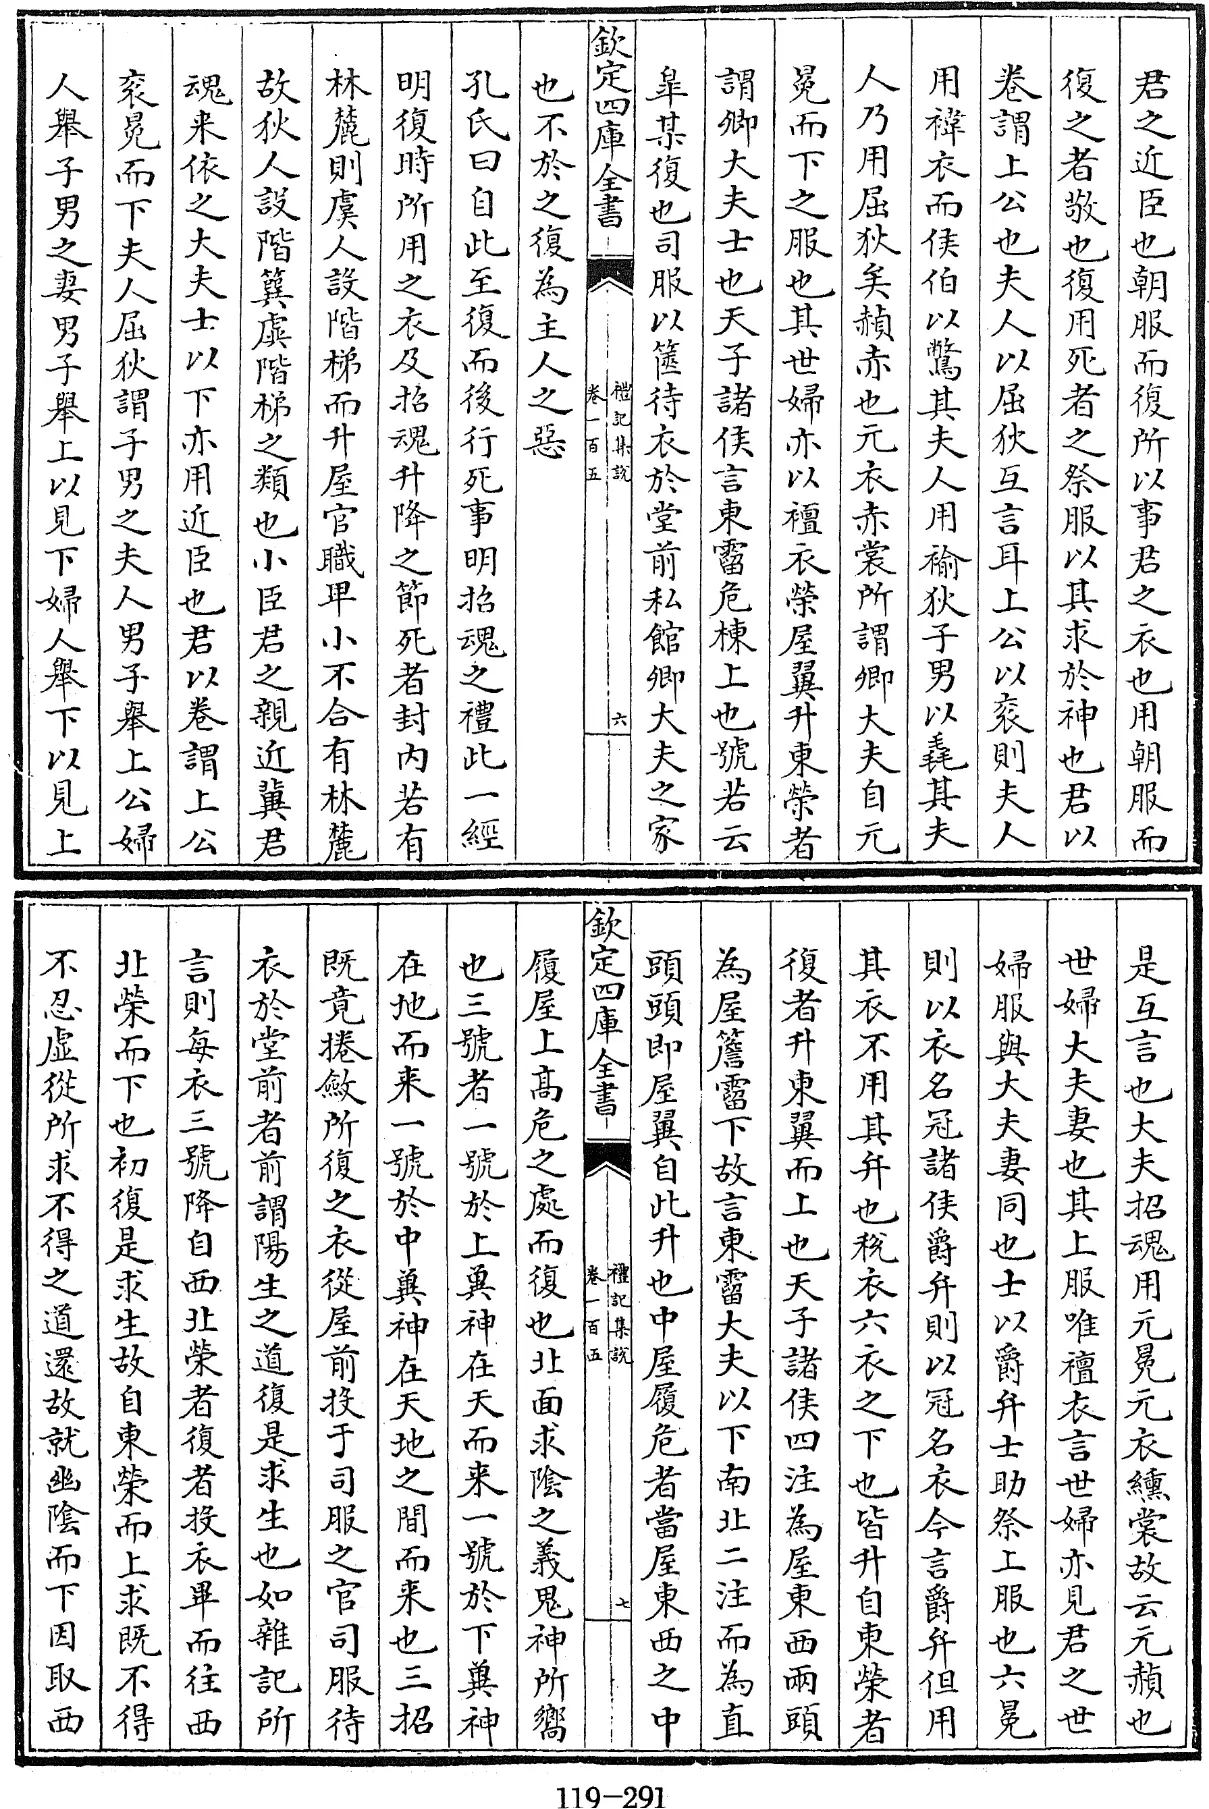 君之近臣也朝服而復所以事君之衣也用朝服而
復之者敬也復用死者之祭服以其求於神也君以
卷謂上公也夫人以屈狄互言耳上公以衮則夫人
用褘衣而侯伯以鷩其夫人用褕狄子男以毳其夫
人乃用屈狄矣赬赤也元衣赤裳所謂卿大夫自元
冕而下之服也其世婦亦以襢衣榮屋翼升東榮者
謂卿大夫士也天子諸侯言東霤危棟上也號若云
臯某復也司服以篋待衣於堂前私館卿大夫之家
欽定四庫全書
禮記集說
卷一百五
六
也不於之復為主人之惡
孔氏曰自此至復而後行死事明招魂之禮此一經
明復時所用之衣及招魂升降之節死者封内若有
林麓則虞人設階梯而升屋官職卑小不合有林麓
故狄人設階簨虡階梯之類也小臣君之親近冀君
魂来依之大夫士以下亦用近臣也君以卷謂上公
衮冕而下夫人屈狄謂子男之夫人男子舉上公婦
人舉子男之妻男子舉上以見下婦人舉下以見上
是互言也大夫招魂用元冕元衣纁裳故云元赬也
世婦大夫妻也其上服唯襢衣言世婦亦見君之世
婦服與大夫妻同也士以爵弁士助祭上服也六冕
則以衣名冠諸侯爵弁則以冠名衣今言爵弁但用
其衣不用其弁也稅衣六衣之下也皆升自東榮者
復者升東翼而上也天子諸侯四注為屋東西兩頭
為屋簷霤下故言東霤大夫以下南北二注而為直
頭頭即屋翼自此升也中屋履危者當屋東西之中
欽定四庫全書
禮記集說
卷一百五
七
履屋上高危之處而復也北面求陰之義鬼神所嚮
也三號者一號於上冀神在天而来一號於下冀神
在地而来一號於中冀神在天地之間而来也三招
既竟捲斂所復之衣從屋前投于司服之官司服待
衣於堂前者前謂陽生之道復是求生也如雜記所
言則每衣三號降自西北榮者復者投衣畢而往西
北榮而下也初復是求生故自東榮而上求既不得
不忍虚從所求不得之道還故就幽陰而下因取西
119-291